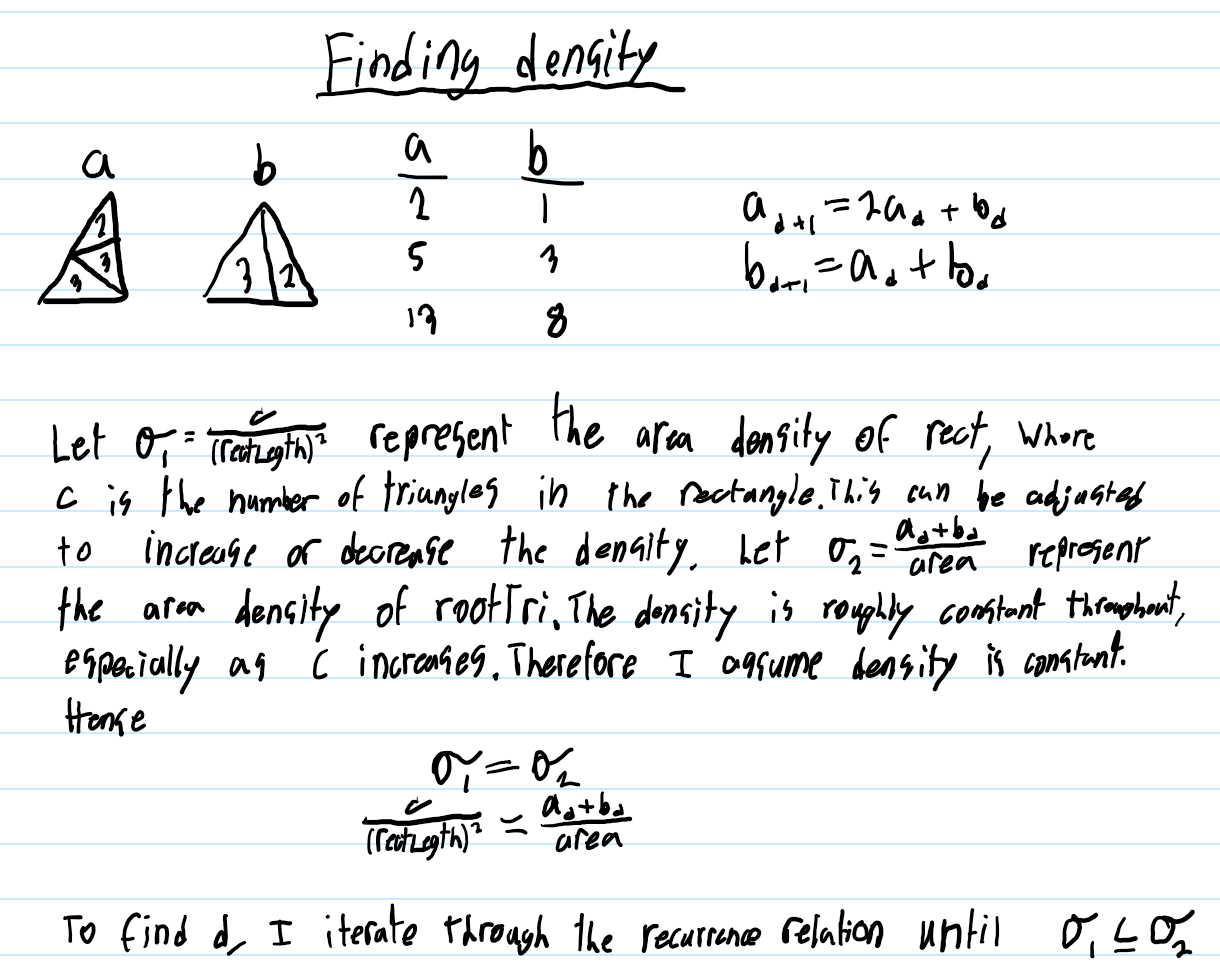 Finding density
a b a b
2 1
5 3
13 8
a_{d+1} = 2a_d + b_d
b_{d+1} = a_d + b_d
2 3 3
3 2
Let σ₁ = c/(rectLegth)² represent the area density of rect, where
c is the number of triangles in the rectangle. This can be adjusted
to increase or decrease the density. Let σ₂ = (a_d + b_d)/area represent
the area density of rootTri. The density is roughly constant throughout,
especially as C increases. Therefore I assume density is constant.
Hence
σ₁ = σ₂
c/(rectLegth)² = (a_d + b_d)/area
To find d, I iterate through the recurrence relation until σ₁ ≤ σ₂